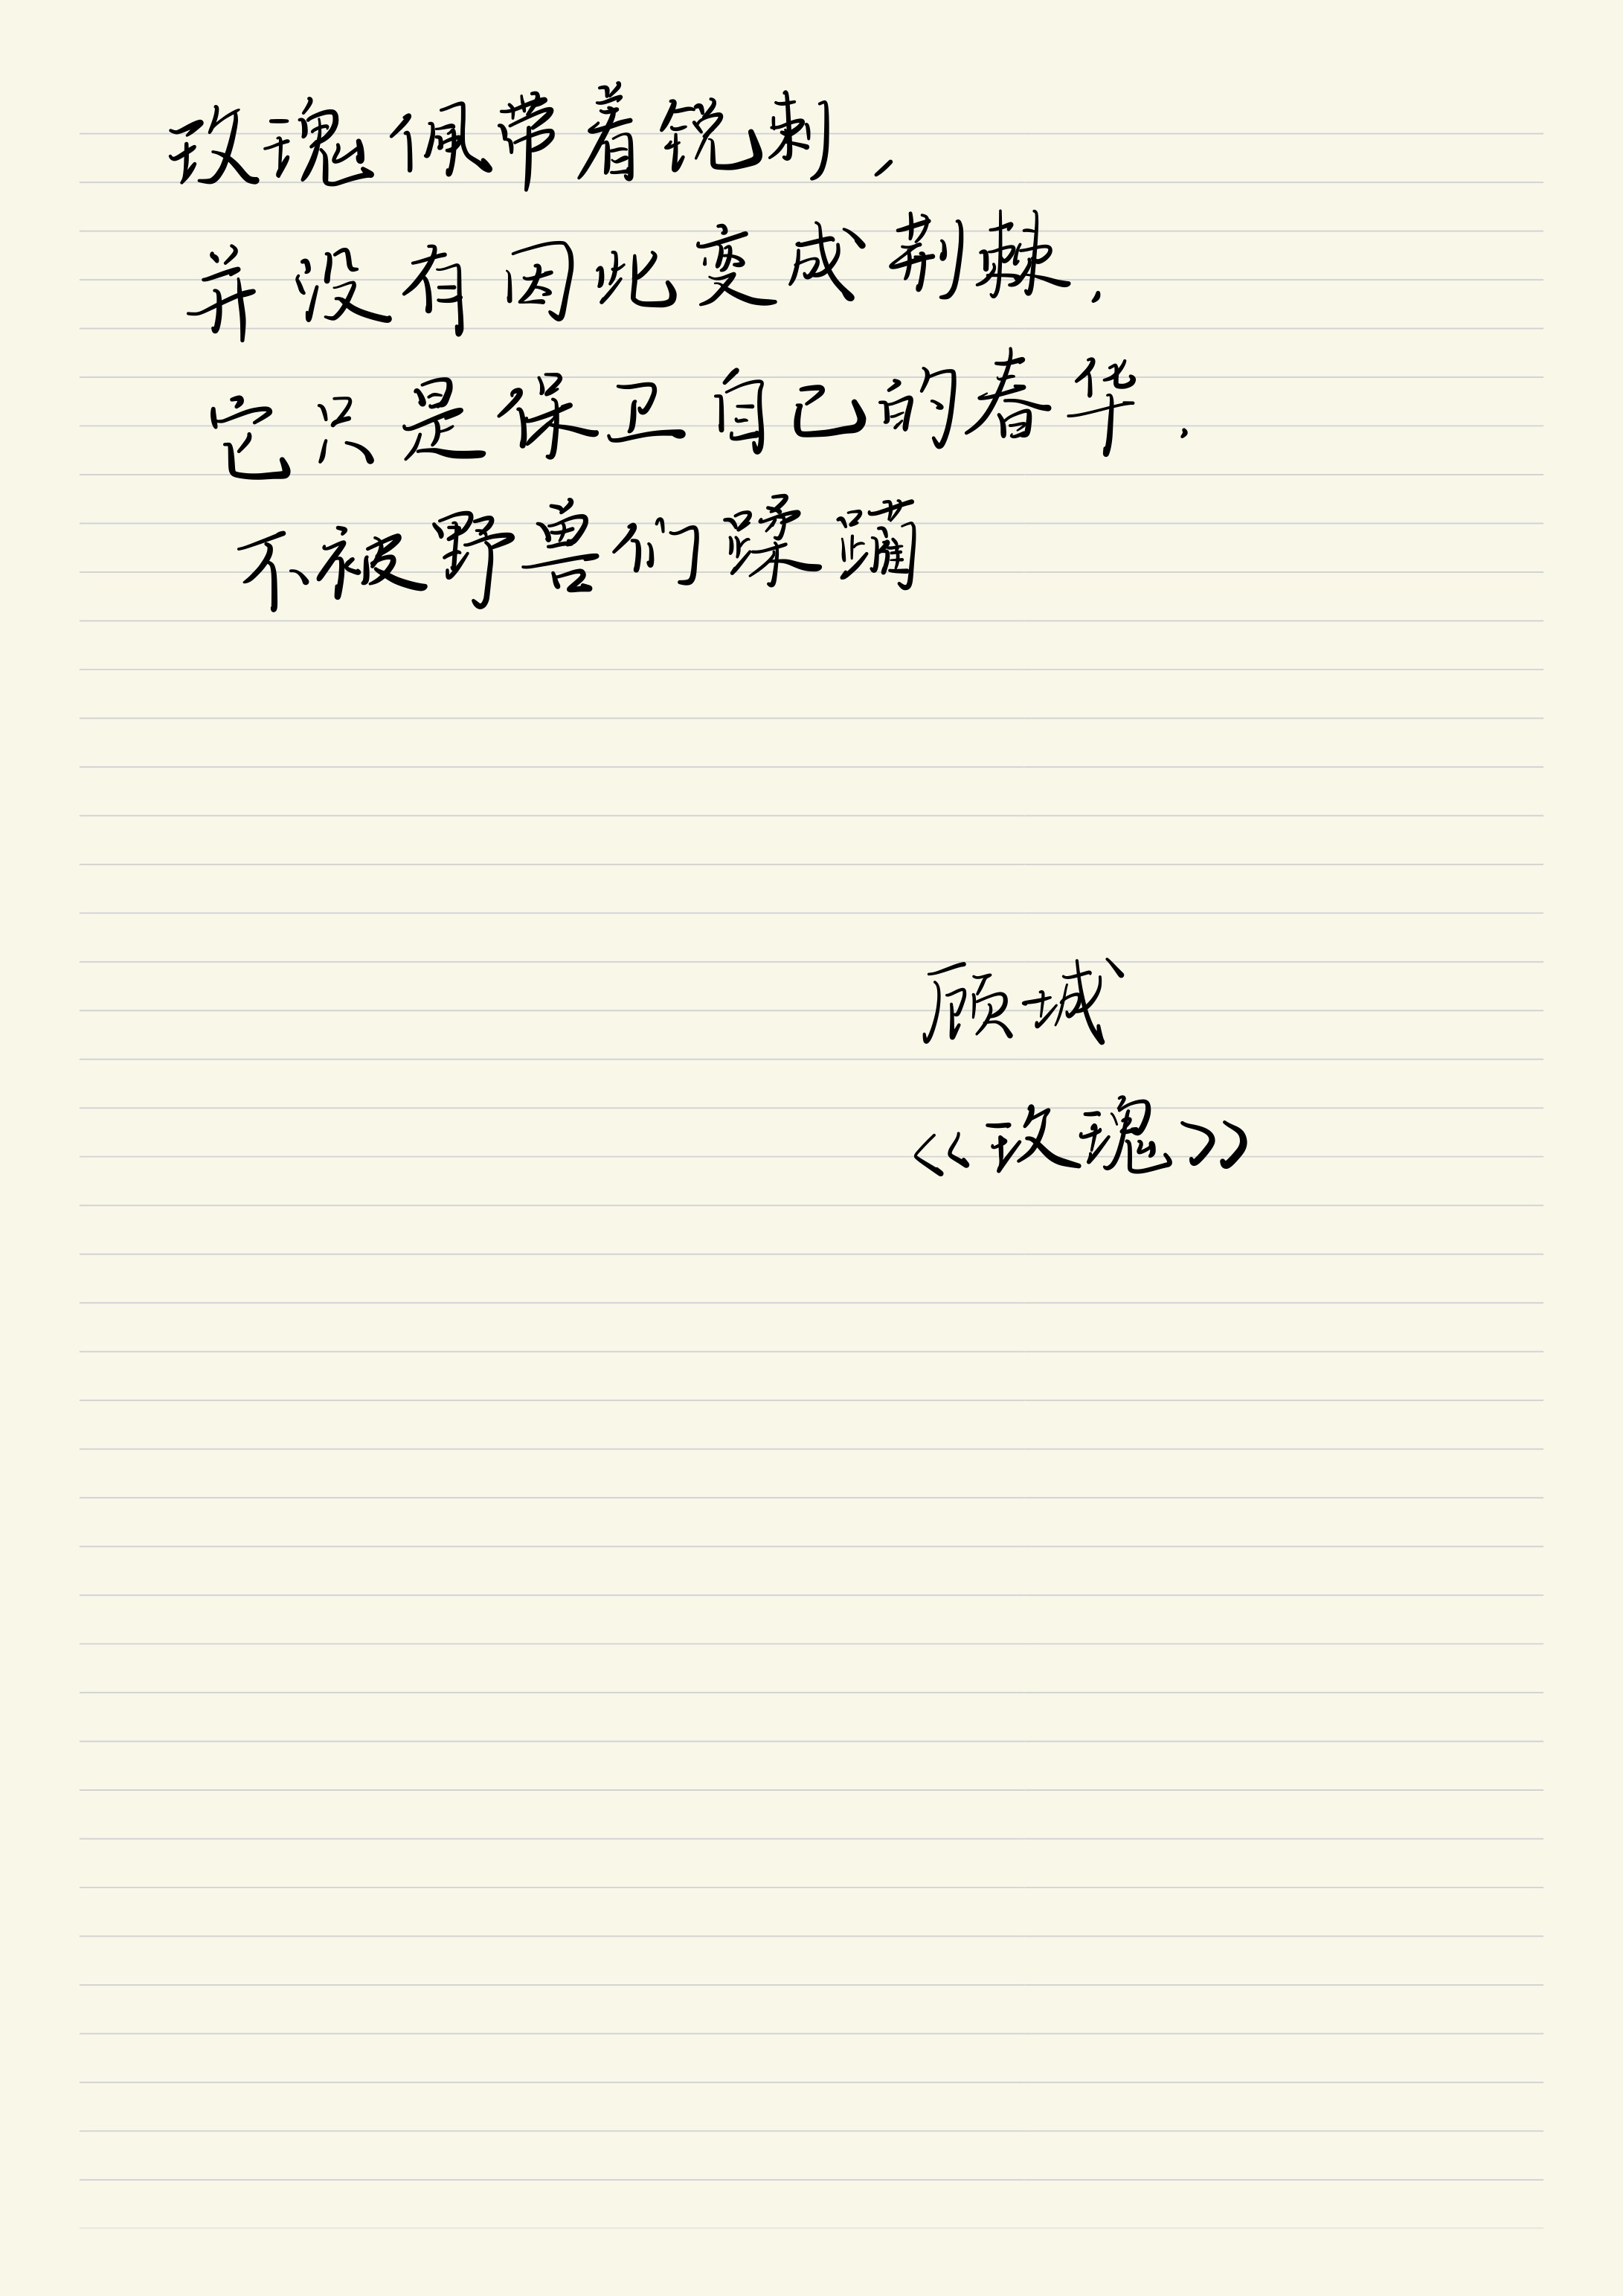 玫瑰佩带着锐刺，
并没有因此变成荆棘，
它只是保卫自己的春华，
不被野兽们蹂躏
顾城
《玫瑰》